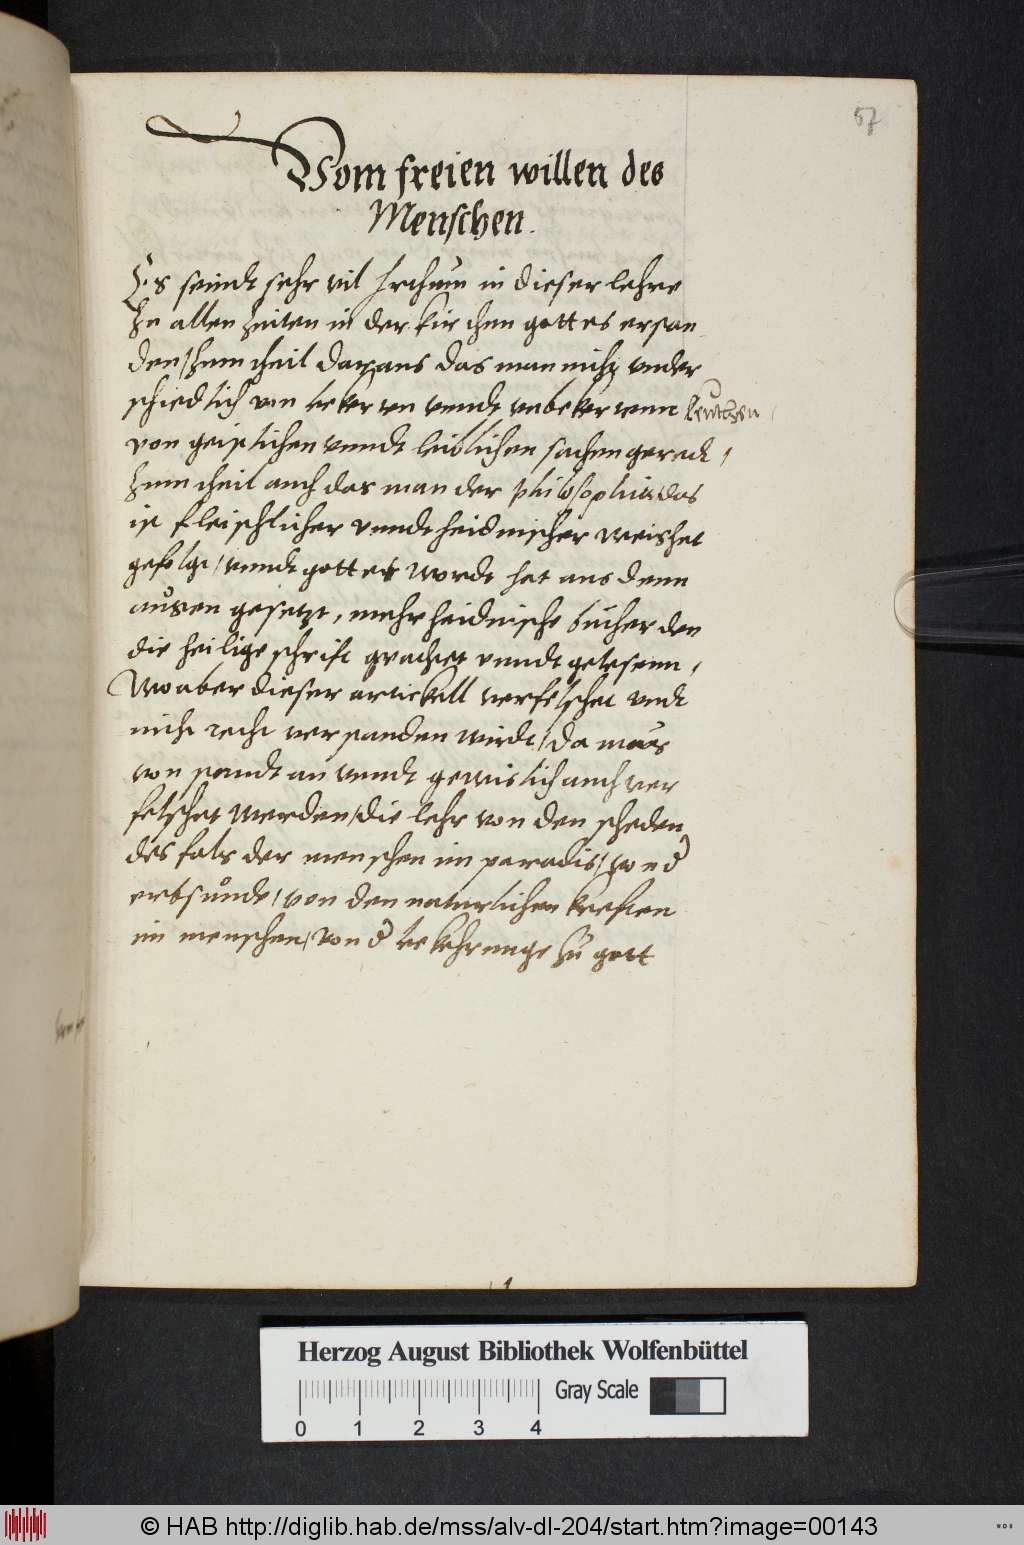 57
Vom freien willen des
Menschen.
Es seindt sehr vil Irthum in dieser lehre
zu allen zeiten in der kirchen gottes erstan
den / zum theil daraus das man nicht under
schiedlich von bekerten unndt unbekertenn leuthen /
von geistlichen unndt leiblichen sachen geredt /
zum theil auch das man der philosophia das
ist fleischlicher unndt heidnischer weishet
gefolgt / unndt gottes wordt hat aus denn
augen gesetzt, mehr heidnische bücher den
die heilige schrift geachtet unndt gelesenn /
Wo aber dieser artickell verfelschet undt
nicht recht verstanden wirdt / da mus
von stundt an unndt gewislich auch ver
felschet werden / die lehr von den scheden
des fals der menschen im paradis / von d
erbsůnde / von den naturlichen kreften
im menschen / von d bekehrunge zu gott
Herzog August Bibliothek Wolfenbüttel
Gray Scale
0 1 2 3 4
© HAB http://diglib.hab.de/mss/alv-dl-204/start.htm?image=00143